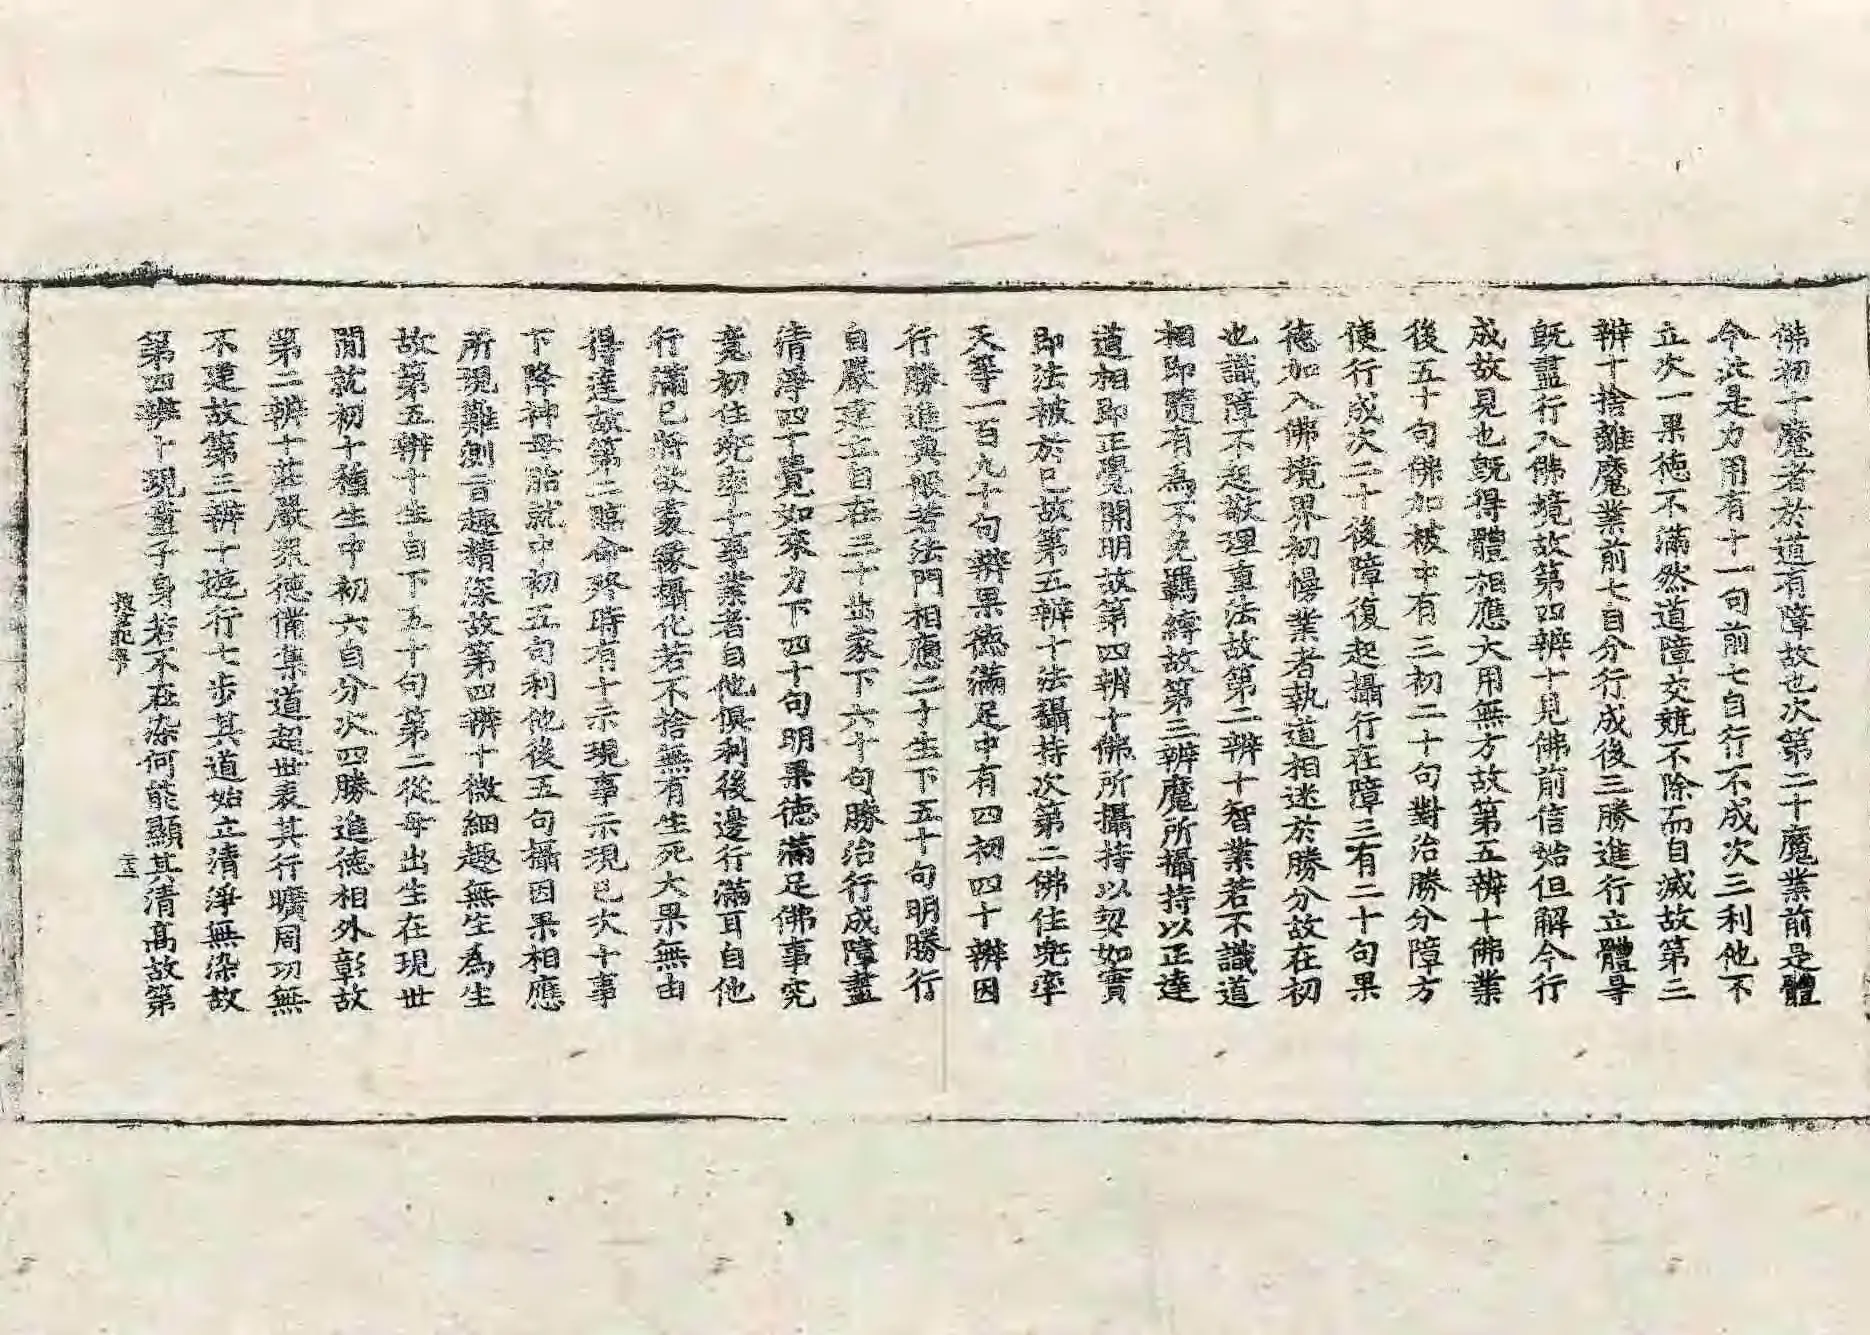 佛初十魔者於道有障故也次第二十魔業前是體
今次是力用有十一句前七自行不成次三利他不
立次一果德不滿然道障交競不除而自滅故第三
辨十捨離魔業前七自分行成後三勝進行立體㝵
既盡行入佛境故第四辨十見佛前信始但解今行
成故見也既得體相應大用無方故第五辨十佛業
後五十句佛加被中有三初二十句對治勝分障方
便行成次二十後障復起攝行在障三有二十句果
德加入佛境界初慢業者執道相迷於勝分故在初
也識障不起敬理重法故第二辨十智業若不識道
相即隨有為不免羈縛故第三辨魔所攝持以正達
道相即正覺開明故第四辨十佛所攝持以契如實
即法被於己故第五辨十法攝持次第二佛住兜率
天等一百九十句辨果德滿足中有四初四十辨因
行勝進與般若法門相應二十生下五十句明勝行
自嚴建立自在三十出家下六十句勝治行成障盡
清淨四十覺如來力下四十句明果德滿足佛事究
竟初住兜率十事業者自他俱利後邊行滿耳自他
行滿已將欲蒙緣攝化若不捨無有生死大果無由
得達故第二臨命終時有十示現事示現已次十事
下降神母胎就中初五句利他後五句攝因果相應
所現難測旨趣精深故第四辨十微細趣無生為生
故第五辨十生自下五十句第二從母出生在現世
閒就初十種生中初六自分次四勝進德相外彰故
第二辨十莊嚴眾德備集道超世表其行曠周功無
不建故第三辨十遊行七步其道始立清淨無染故
第四辨十現童子身若不在染何能顯其清高故第